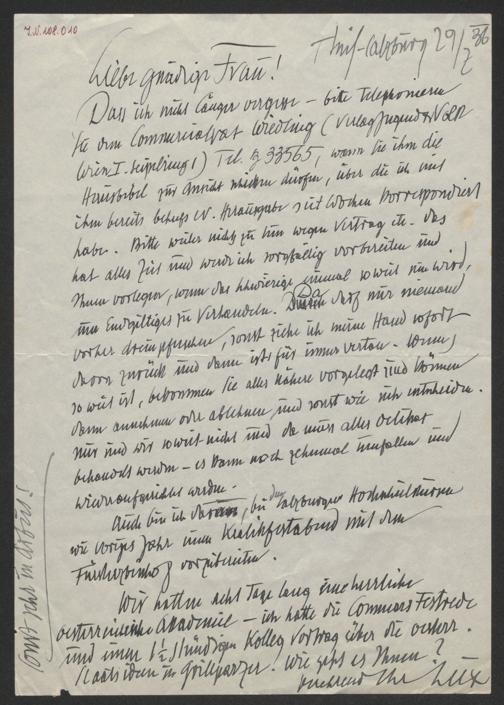 I.N. 108.010
Thurf-Salzburg 29/I 36
Liebe gnädige Frau!
Dass ich nicht länger vergesse – bitte telephonieren
Sie dem Commerzialrat Wiedling (Verlag Jugend & Volk
Wien I. ) Tel. 33565, wann Sie ihm die
Hausbibel zur Ansicht schicken dürfen, über die ich mit
ihm bereits behufs ev. Herausgabe seit Wochen korrespondiert
habe. Bitte weiter nichts zu tun wegen Vertrag etc. Das
hat alles Zeit und werde ich sorgfältig vorbereiten und
Ihnen vorlegen, wenn das Schwierige einmal soweit sein wird,
um Endgiltiges zu verhandeln. Da darf nur niemand
vorher dreinpfuschen, sonst ziehe ich meine Hand sofort
davon zurück und dann ists für immer vertan. Wenns
so weit ist, bekommen Sie alles nähere vorgelegt und können
dann annehmen oder ablehnen, und sonst wie sich entscheiden.
Nur sind wir soweit nicht und da muss alles
behandelt werden – es kann noch zehnmal umfallen und
wiederaufgerichtet werden.
Auch bin ich daran, bei den Salzburger Hochschulkursen
wie voriges Jahr einen Kralikfestabend mit dem
Fürsterzbischof vorzubereiten.
Wir hatten acht Tage lang eine herrliche
österreichische Akademie – ich hatte die Commers Festrede
und einen 1½ stündigen Kolleg Vortrag über die österr.
Staatsidee in Grillparzer. Wie geht es Ihnen?
verehrend Ihr Lux
Sonst sehr in